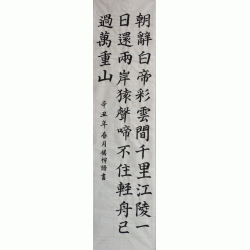 朝辭白帝彩雲間千里江陵一
日還兩岸猿聲啼不住輕舟已
過萬重山
辛丑年春月楊恒勝書